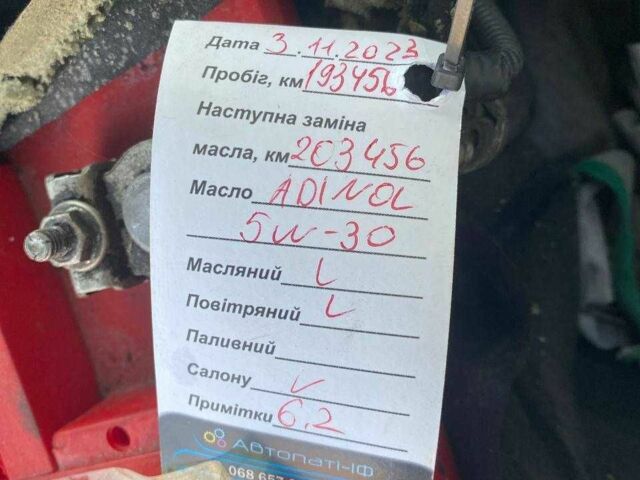 Дата 3.11.2023
Пробіг, км 193456
Наступна заміна
масла, км 203456
Масло ADINOL
5W-30
Масляний V
Повітряний V
Паливний
Салону V
Примітки 6,2
Автопаті-ІФ
068 657